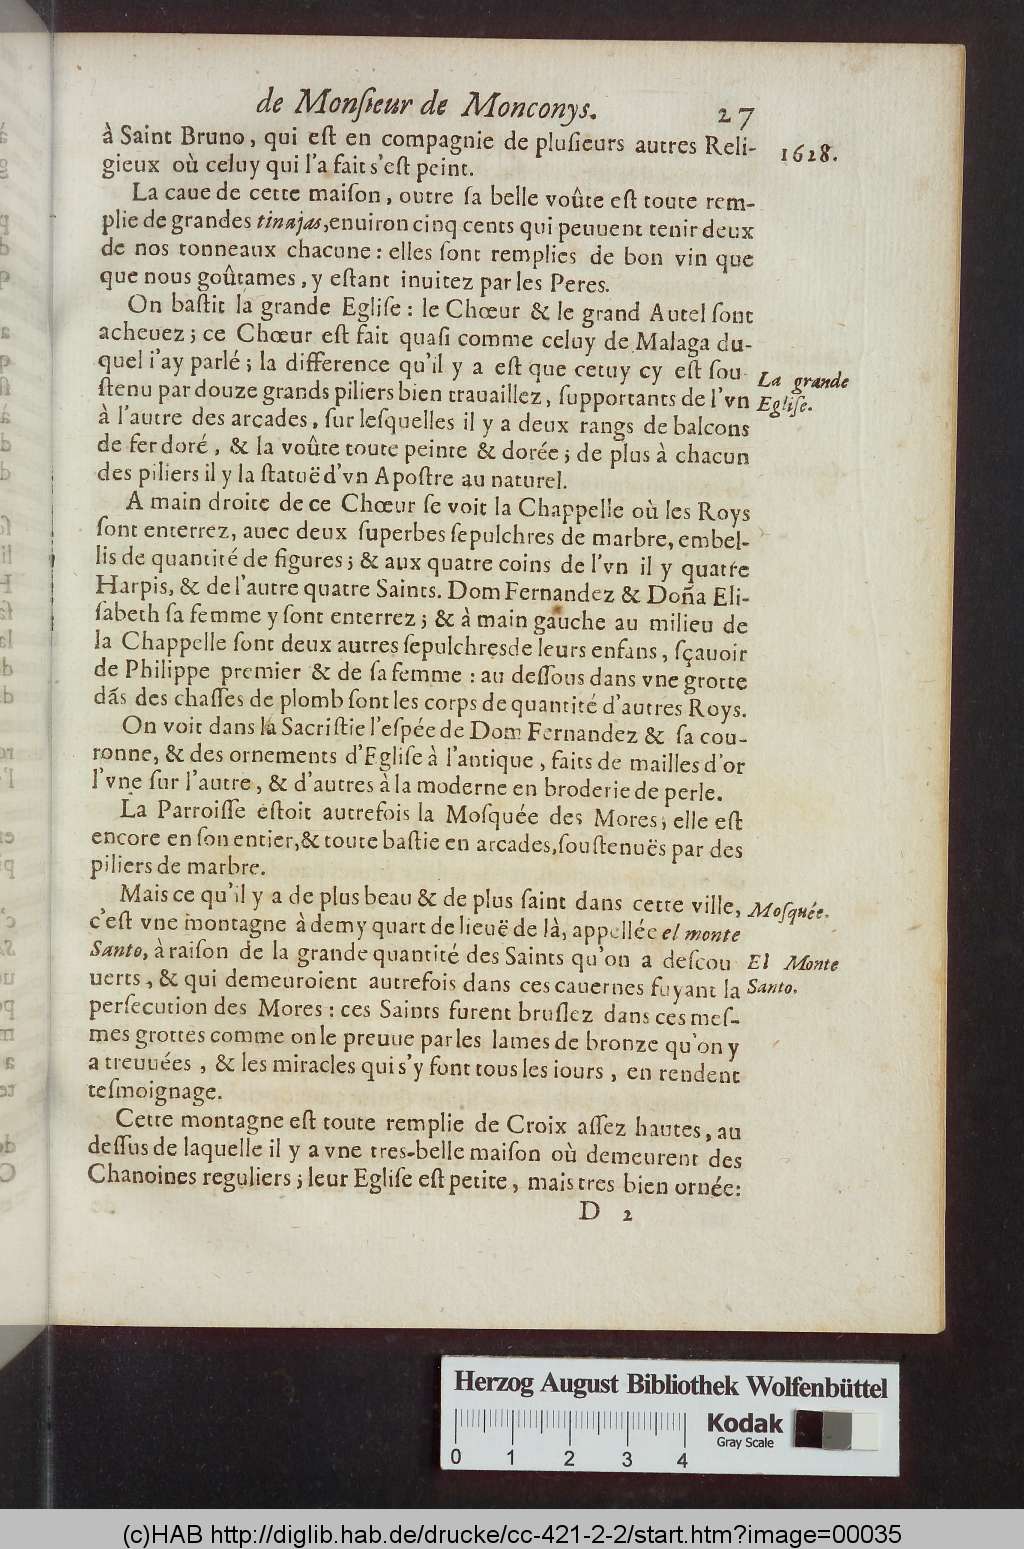 de Monſieur de Monconys. 27
à Saint Bruno, qui eſt en compagnie de pluſieurs autres Reli-
1628.
gieux où celuy qui l'a fait s'eſt peint.
La caue de cette maiſon, outre ſa belle voûte eſt toute rem-
plie de grandes tinajas, enuiron cinq cents qui peuuent tenir deux
de nos tonneaux chacune : elles ſont remplies de bon vin que
que nous goûtames, y eſtant inuitez par les Peres.
On baſtit la grande Egliſe : le Chœur & le grand Autel ſont
acheuez ; ce Chœur eſt fait quaſi comme celuy de Malaga du-
quel i'ay parlé ; la difference qu'il y a eſt que cetuy cy eſt ſou
La grande
ſtenu par douze grands piliers bien trauaillez, ſupportants de l'vn
Egliſe.
à l'autre des arcades, ſur leſquelles il y a deux rangs de balcons
de fer doré, & la voûte toute peinte & dorée ; de plus à chacun
des piliers il y la ſtatuë d'vn Apoſtre au naturel.
A main droite de ce Chœur ſe voit la Chappelle où les Roys
ſont enterrez, auec deux ſuperbes ſepulchres de marbre, embel-
lis de quantité de figures ; & aux quatre coins de l'vn il y quatre
Harpis, & de l'autre quatre Saints. Dom Fernandez & Doña Eli-
ſabeth ſa femme y ſont enterrez ; & à main gauche au milieu de
la Chappelle ſont deux autres ſepulchres de leurs enfans, ſçauoir
de Philippe premier & de ſa femme : au deſſous dans vne grotte
dãs des chaſſes de plomb ſont les corps de quantité d'autres Roys.
On voit dans la Sacriſtie l'eſpée de Dom Fernandez & ſa cou-
ronne, & des ornements d'Egliſe à l'antique, faits de mailles d'or
l'vne ſur l'autre, & d'autres à la moderne en broderie de perle.
La Parroiſſe eſtoit autrefois la Moſquée des Mores ; elle eſt
encore en ſon entier, & toute baſtie en arcades, ſouſtenuës par des
piliers de marbre.
Mais ce qu'il y a de plus beau & de plus ſaint dans cette ville,
Moſquée.
c'eſt vne montagne à demy quart de lieuë de là, appellée el monte
Santo, à raiſon de la grande quantité des Saints qu'on a deſcou
El Monte
uerts, & qui demeuroient autrefois dans ces cauernes fuyant la
Santo.
perſecution des Mores : ces Saints furent bruſlez dans ces meſ-
mes grottes comme on le preuue par les lames de bronze qu'on y
a treuuées, & les miracles qui s'y font tous les iours, en rendent
teſmoignage.
Cette montagne eſt toute remplie de Croix aſſez hautes, au
deſſus de laquelle il y a vne tres-belle maiſon où demeurent des
Chanoines reguliers ; leur Egliſe eſt petite, mais tres bien ornée :
D 2
Herzog August Bibliothek Wolfenbüttel
Kodak
Gray Scale
0 1 2 3 4
(c)HAB http://diglib.hab.de/drucke/cc-421-2-2/start.htm?image=00035